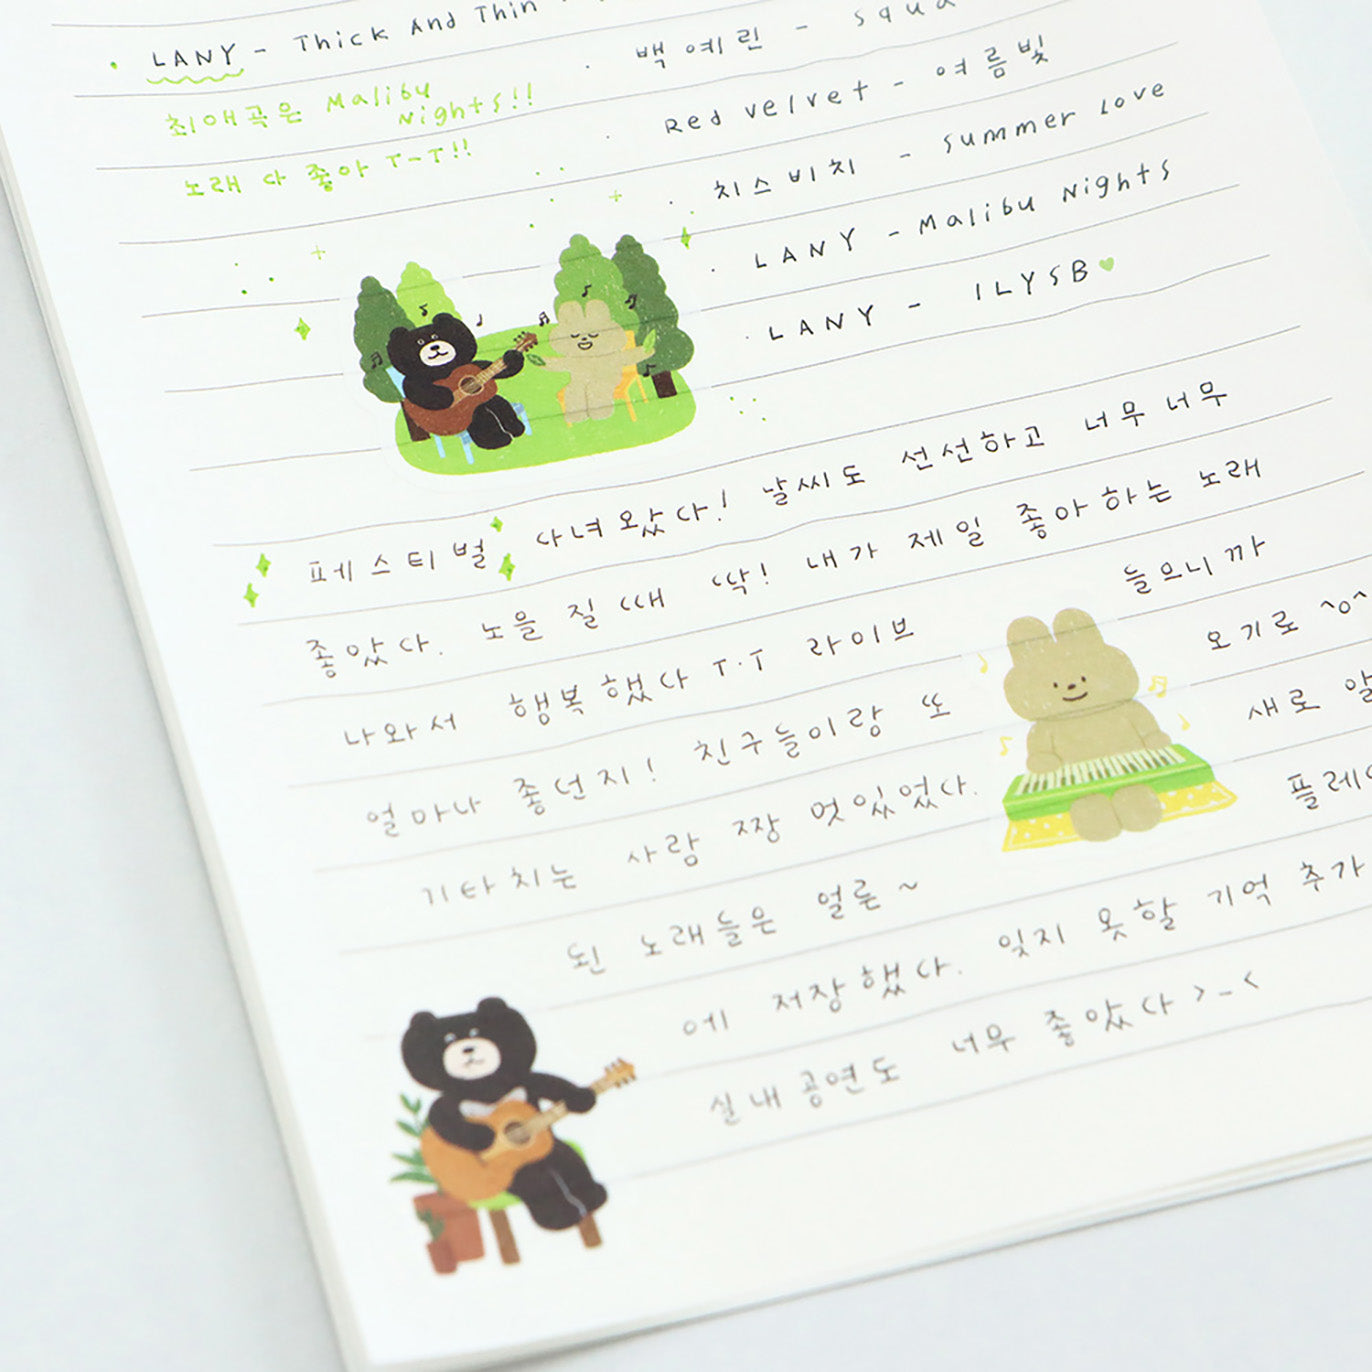 · LANY - Thick And Thin
최애곡은 Malibu
Nights!!
노래 다 좋아 T-T!!
· 백예린 - squa
· Red velvet - 여름빛
· 치스비치 - summer Love
· LANY - Malibu Nights
· LANY - ILYSB♥
페스티벌 다녀왔다! 날씨도 선선하고 너무너무
좋았다. 노을 질 때 딱! 내가 제일 좋아하는 노래
나와서 행복했다 T.T 라이브 들으니까
얼마나 좋던지! 친구들이랑 또 오기로 ^o^
기타치는 사람 짱 멋있었다. 새로 알
된 노래들은 얼른~ 플레
에 저장했다. 잊지 못할 기억 추가
실내공연도 너무 좋았다 >_<